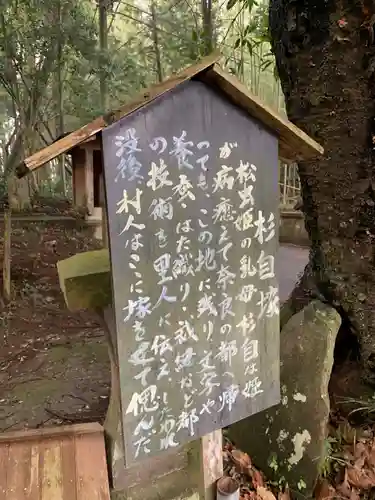 杉自塚
松虫姫の乳母杉自は姫
が病癒えて奈良の都へ帰
っても、この地に残り文字や
養蚕、はた織り、裁縫など都
の技術を里人に伝え
没後、村人は塚を建て偲んだ